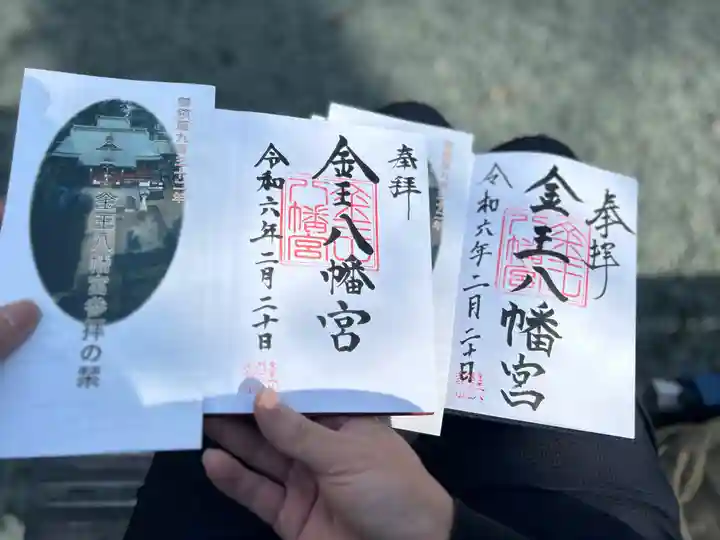 御鎮座九百三十年
金王八幡宮参拝の栞
奉拝
金王八幡宮
令和六年二月二十日
金王八幡宮
奉拝
金王八幡宮
令和六年二月二十日
金王八幡宮